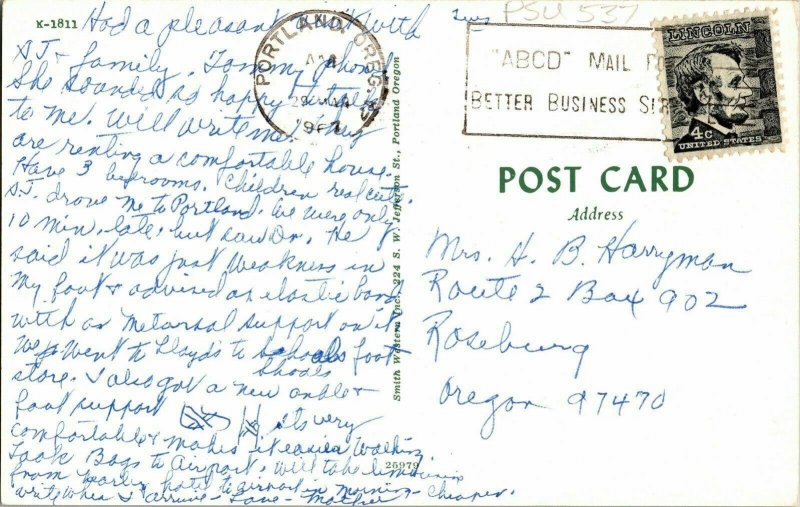 K-1811
Had a pleasant visit with
S.J. & family. Tommy phoned
She sounded so happy to talk
to me. Will write me. They
are renting a comfortable house.
Have 3 bedrooms. Children real cute.
S.J. drove me to Portland. We were only
10 min. late, but saw Dr. He
said it was just weakness in
my foot & advised an elastic band
with an metarsal support on it
We went to Lloyds to schools foot
Shoals
store. I also got a new ankle &
foot support its very
comfortable & makes it easier walking.
Took Bags to Airport, will take limousine
from nearby hotel to airport in morning - cheaper.
Write when I arrive - Love - Mother
Smith Western Inc., 224 S. W. Jefferson St., Portland Oregon
25979
PSU 537
PORTLAND, OREG.
1967
"ABCD" MAIL FO
BETTER BUSINESS
LINCOLN
4c
UNITED STATES
POST CARD
Address
Mrs. H. B. Harryman
Route 2 Box 902
Roseburg
Oregon 97470